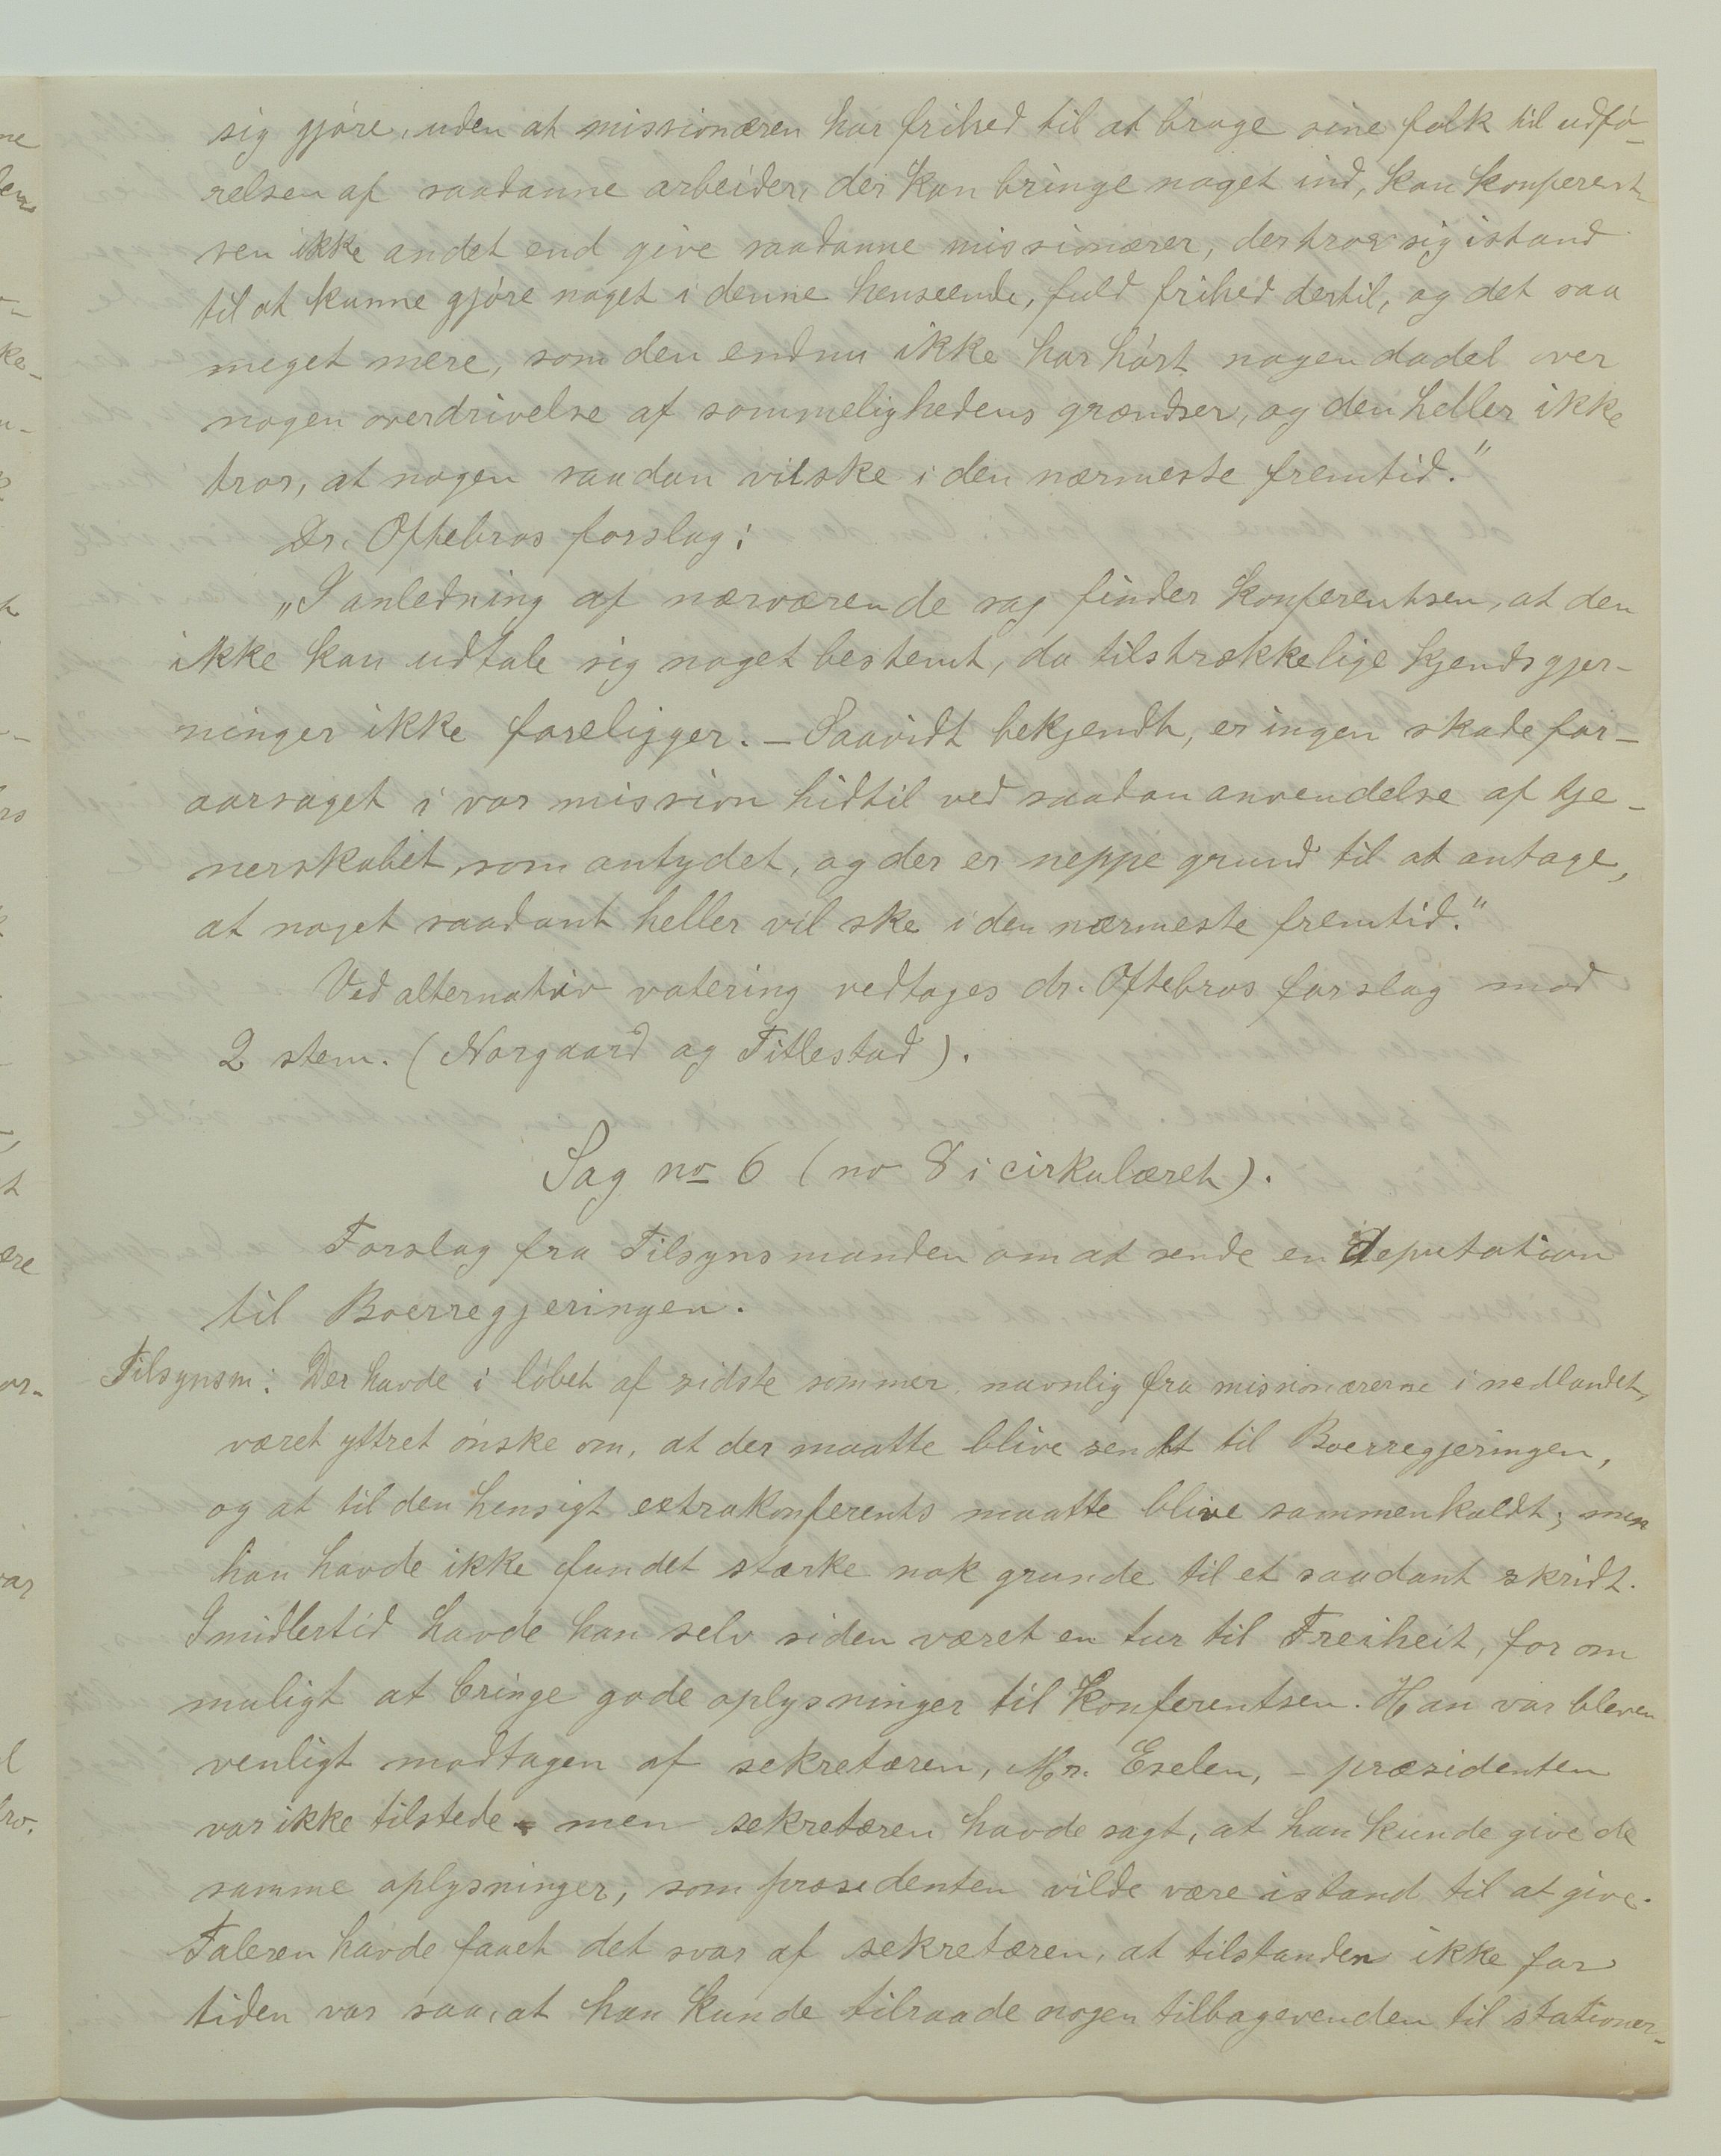 sig gjøre, uden at missionæren har frihed til at bruge sine folk til udfø-
relsen af saadanne arbeider, der kan bringe noget ind, kan konferent-
sen ikke andet end give saadanne missionærer, der tror sig istand
til at kunne gjøre noget i denne henseende, fuld frihed dertil, og det saa
meget mere, som den endnu ikke har hørt nogen dadel over
nogen overdrivelse af sømmelighedens grændser, og den heller ikke
tror, at nogen saadan vil ske i den nærmeste fremtid."
Dr. Oftebros forslag:
„I anledning af nærværende sag finder konferentsen, at den
ikke kan udtale sig noget bestemt, da tilstrækkelige kjendsgjer-
ninger ikke foreligger. – Saavidt bekjendt, er ingen skade for-
aarsaget i vor mission hidtil ved saadan anvendelse af tje-
nerskabet, som antydet, og der er neppe grund til at antage,
at noget saadant heller vil ske i den nærmeste fremtid."
Ved alternativ votering vedtoges dr. Oftebros forslag mod
2 stem. (Norgaard og Titlestad).
Sag no 6 (no 8 i cirkulæret).
Forslag fra Tilsynsmanden om at sende en deputation
til Boerregjeringen.
Tilsynsm: Der havde i løbet af sidste sommer, navnlig fra missionærerne i nedlandet,
været yttret ønske om, at der maatte blive sendt til Boerregjeringen,
og at til den hensigt extrakonferents maatte blive sammenkaldt; men
han havde ikke fundet stærke nok grunde til et saadant skridt.
Imidlertid havde han selv siden været en tur til Freiheit, for om
muligt at bringe gode oplysninger til konferentsen. Han var bleven
venligt modtagen af sekretæren, Mr. Eselen, – præsidenten
var ikke tilstede – men sekretæren havde sagt, at han kunde give de
samme oplysninger, som præsidenten vilde være istand til at give.
Taleren havde faaet det svar af sekretæren, at tilstanden ikke for
tiden var saa, at han kunde tilraade nogen tilbagevenden til stationer-